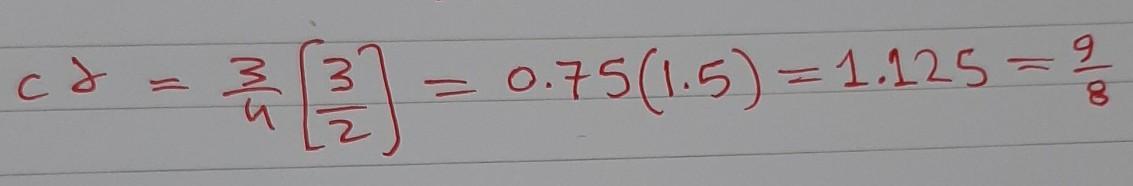 cγ = 3/4 [3/2] = 0.75(1.5) = 1.125 = 9/8